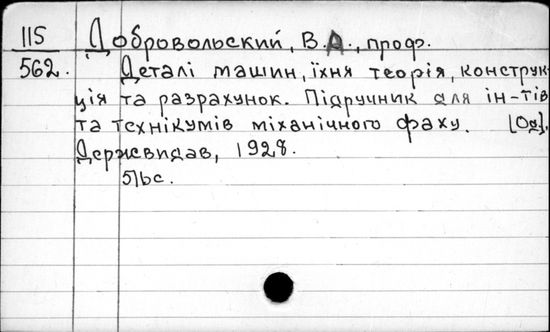 115 Добровольский, В.А., проф.
562. Деталі машин, їхня теорія, конструк-
ція та разрахунок. Підручник для ін-тів
та технікумів міханічного фаху. [Од].
Держвидав, 1928.
51bc.